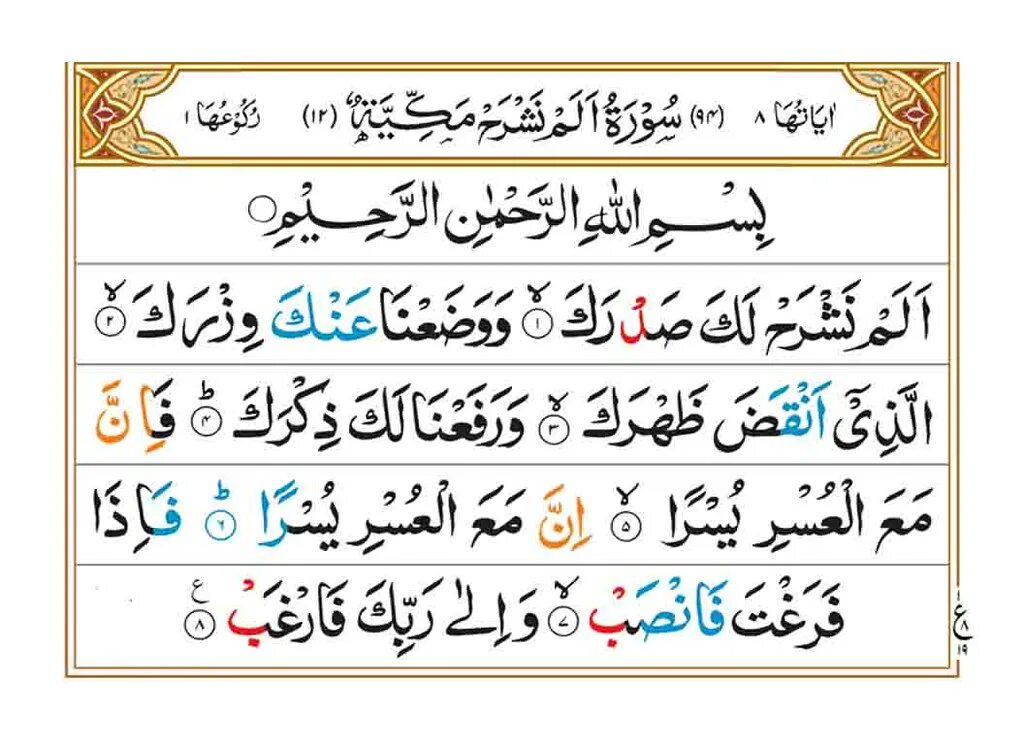 اٰيَاتُهَا ٨ (٩٤) سُوْرَةُ اَلَمْ نَشْرَحْ مَكِّيَّةٌ (١٢) رُكُوْعُهَا ١
بِسْمِ اللهِ الرَّحْمٰنِ الرَّحِيْمِ ۝
اَلَمْ نَشْرَحْ لَكَ صَدْرَكَ ۙ‏﴿۱﴾ وَوَضَعْنَا عَنْكَ وِزْرَكَ ۙ‏﴿۲﴾
الَّذِىْۤ اَنْقَضَ ظَهْرَكَ ۙ‏﴿۳﴾ وَرَفَعْنَا لَكَ ذِكْرَكَ ؕ‏﴿۴﴾ فَاِنَّ
مَعَ الْعُسْرِ يُسْرًا ۙ‏﴿۵﴾ اِنَّ مَعَ الْعُسْرِ يُسْرًا ؕ‏﴿۶﴾ فَاِذَا
فَرَغْتَ فَانْصَبْ ۙ‏﴿۷﴾ وَاِلٰى رَبِّكَ فَارْغَبْ ‏﴿۸﴾ ع
ع ٨ ١٩